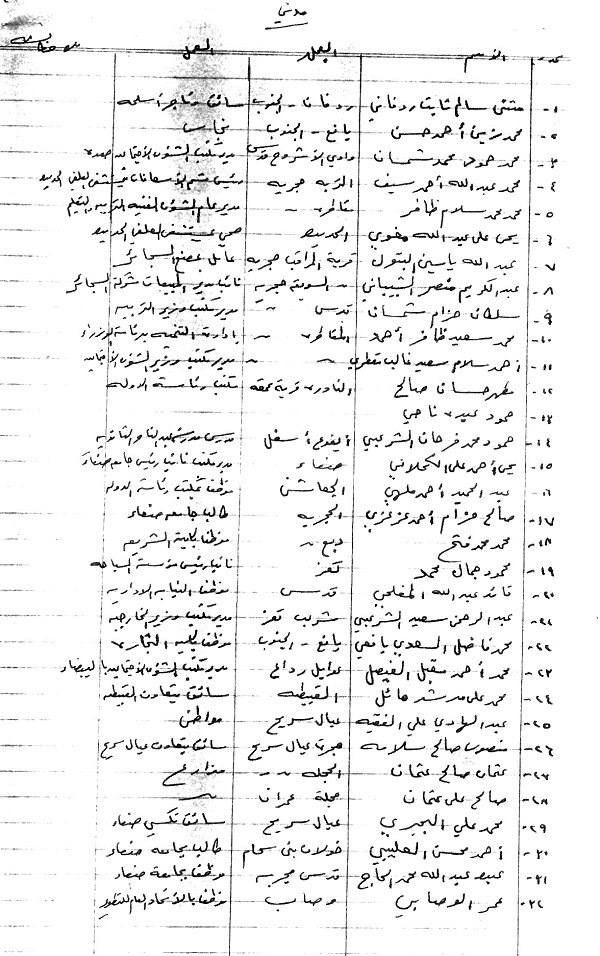 مدني
عدد الاسم البلد العمل ملاحظات
١- مثنى سالم ثابت ردفاني ردفان - الجنوب سائق وتاجر أسلحه
٢- محمد رزيق أحمد حسن يافع - الجنوب نجار
٣- محمد حمود محمد شمسان وادي الأشروح قدس مدير مكتب الشؤون الأجتماعيه صعده
٤- محمد عبدالله أحمد سيف التربه حجريه رئيس قسم الأسعافات مستشفى العلفي الحديده
٥- محمد محمد سلام ظافر مقاطره " مدير عام الشؤون الفنيه التربيه والتعليم
٦- يحيى علي عبدالله الحديده صحي بمستشفى العلفي الحديده
٧- عبدالله ياسين البتول قرية المراقب حجريه عامل بمصنع السجائر
٨- عبدالكريم منصر الشيباني السويقه حجريه نائب مدير المبيعات شركة السجائر
٩- سلطان حزام شمسان قدس " مدير مكتب وزير التربيه
١٠- محمد سعيد ظافر أحمد المقاطره " بإدارة التغذيه برئاسة الوزراء
١١- أحمد سلام سعيد غالب مقطري " " مدير مكتب وزير الشؤون الأجتماعيه
١٢- مطهر حسان صالح النادره قرية مكتب رئاسة الدوله
١٣- حمود عبده ناجي
١٤- حمود محمد فرحان الشرعبي أيفوع أسفل مدرس مدرسة عبدالناصر الثانويه
١٥- يحيى أحمد علي الكحلاني صنعاء مدير مكتب نائب رئيس جامعة صنعاء
١٦- عبدالحميد أحمد ملهي الحفاشن موظف بمكتب رئاسة الدوله
١٧- صالح حزام أحمد عزعزي الحجريه طالب جامعه صنعاء
١٨- محمد محمد فتح دبع " موظف بكلية الشريعه
١٩- محمود جمال محمد تعز نائب رئيس مؤسسة السياحه
٢٠- قائد عبدالله المفلحي قدس موظف النيابه الاداريه
٢١- عبدالرحمن سعيد الشرعبي شرعب تعز مدير مكتب وزير الخارجيه
٢٢- محمد فاضل السعدي يافعي يافع - الجنوب موظف بكلية التجاره
٢٣- محمد أحمد مقبل الفيصل رداع مدير مكتب الشؤون الأجتماعيه بالبيضاء
٢٤- محمد علي مرشد هائل القبيطه سائق بتعاون القبيطه
٢٥- عبدالهادي علي الفقيه عيال سريح مواطن
٢٦- منصور صالح سلامه عيال سريح سائق بتعاون عيال سريح
٢٧- عثمان صالح عثمان الجله " مزارع
٢٨- صالح علي عثمان جلة عمران "
٢٩- محمد علي البحيري عيال سريح سائق تكسي صنعاء
٣٠- أحمد محسن الصليبي خولان بني سحام طالب بجامعه صنعاء
٣١- عبده عبدالله محمد الحاج قدس حجريه موظف بجامعة صنعاء
٣٢- عمر الوصابي وصاب موظف بالأتحاد العام للتطوير